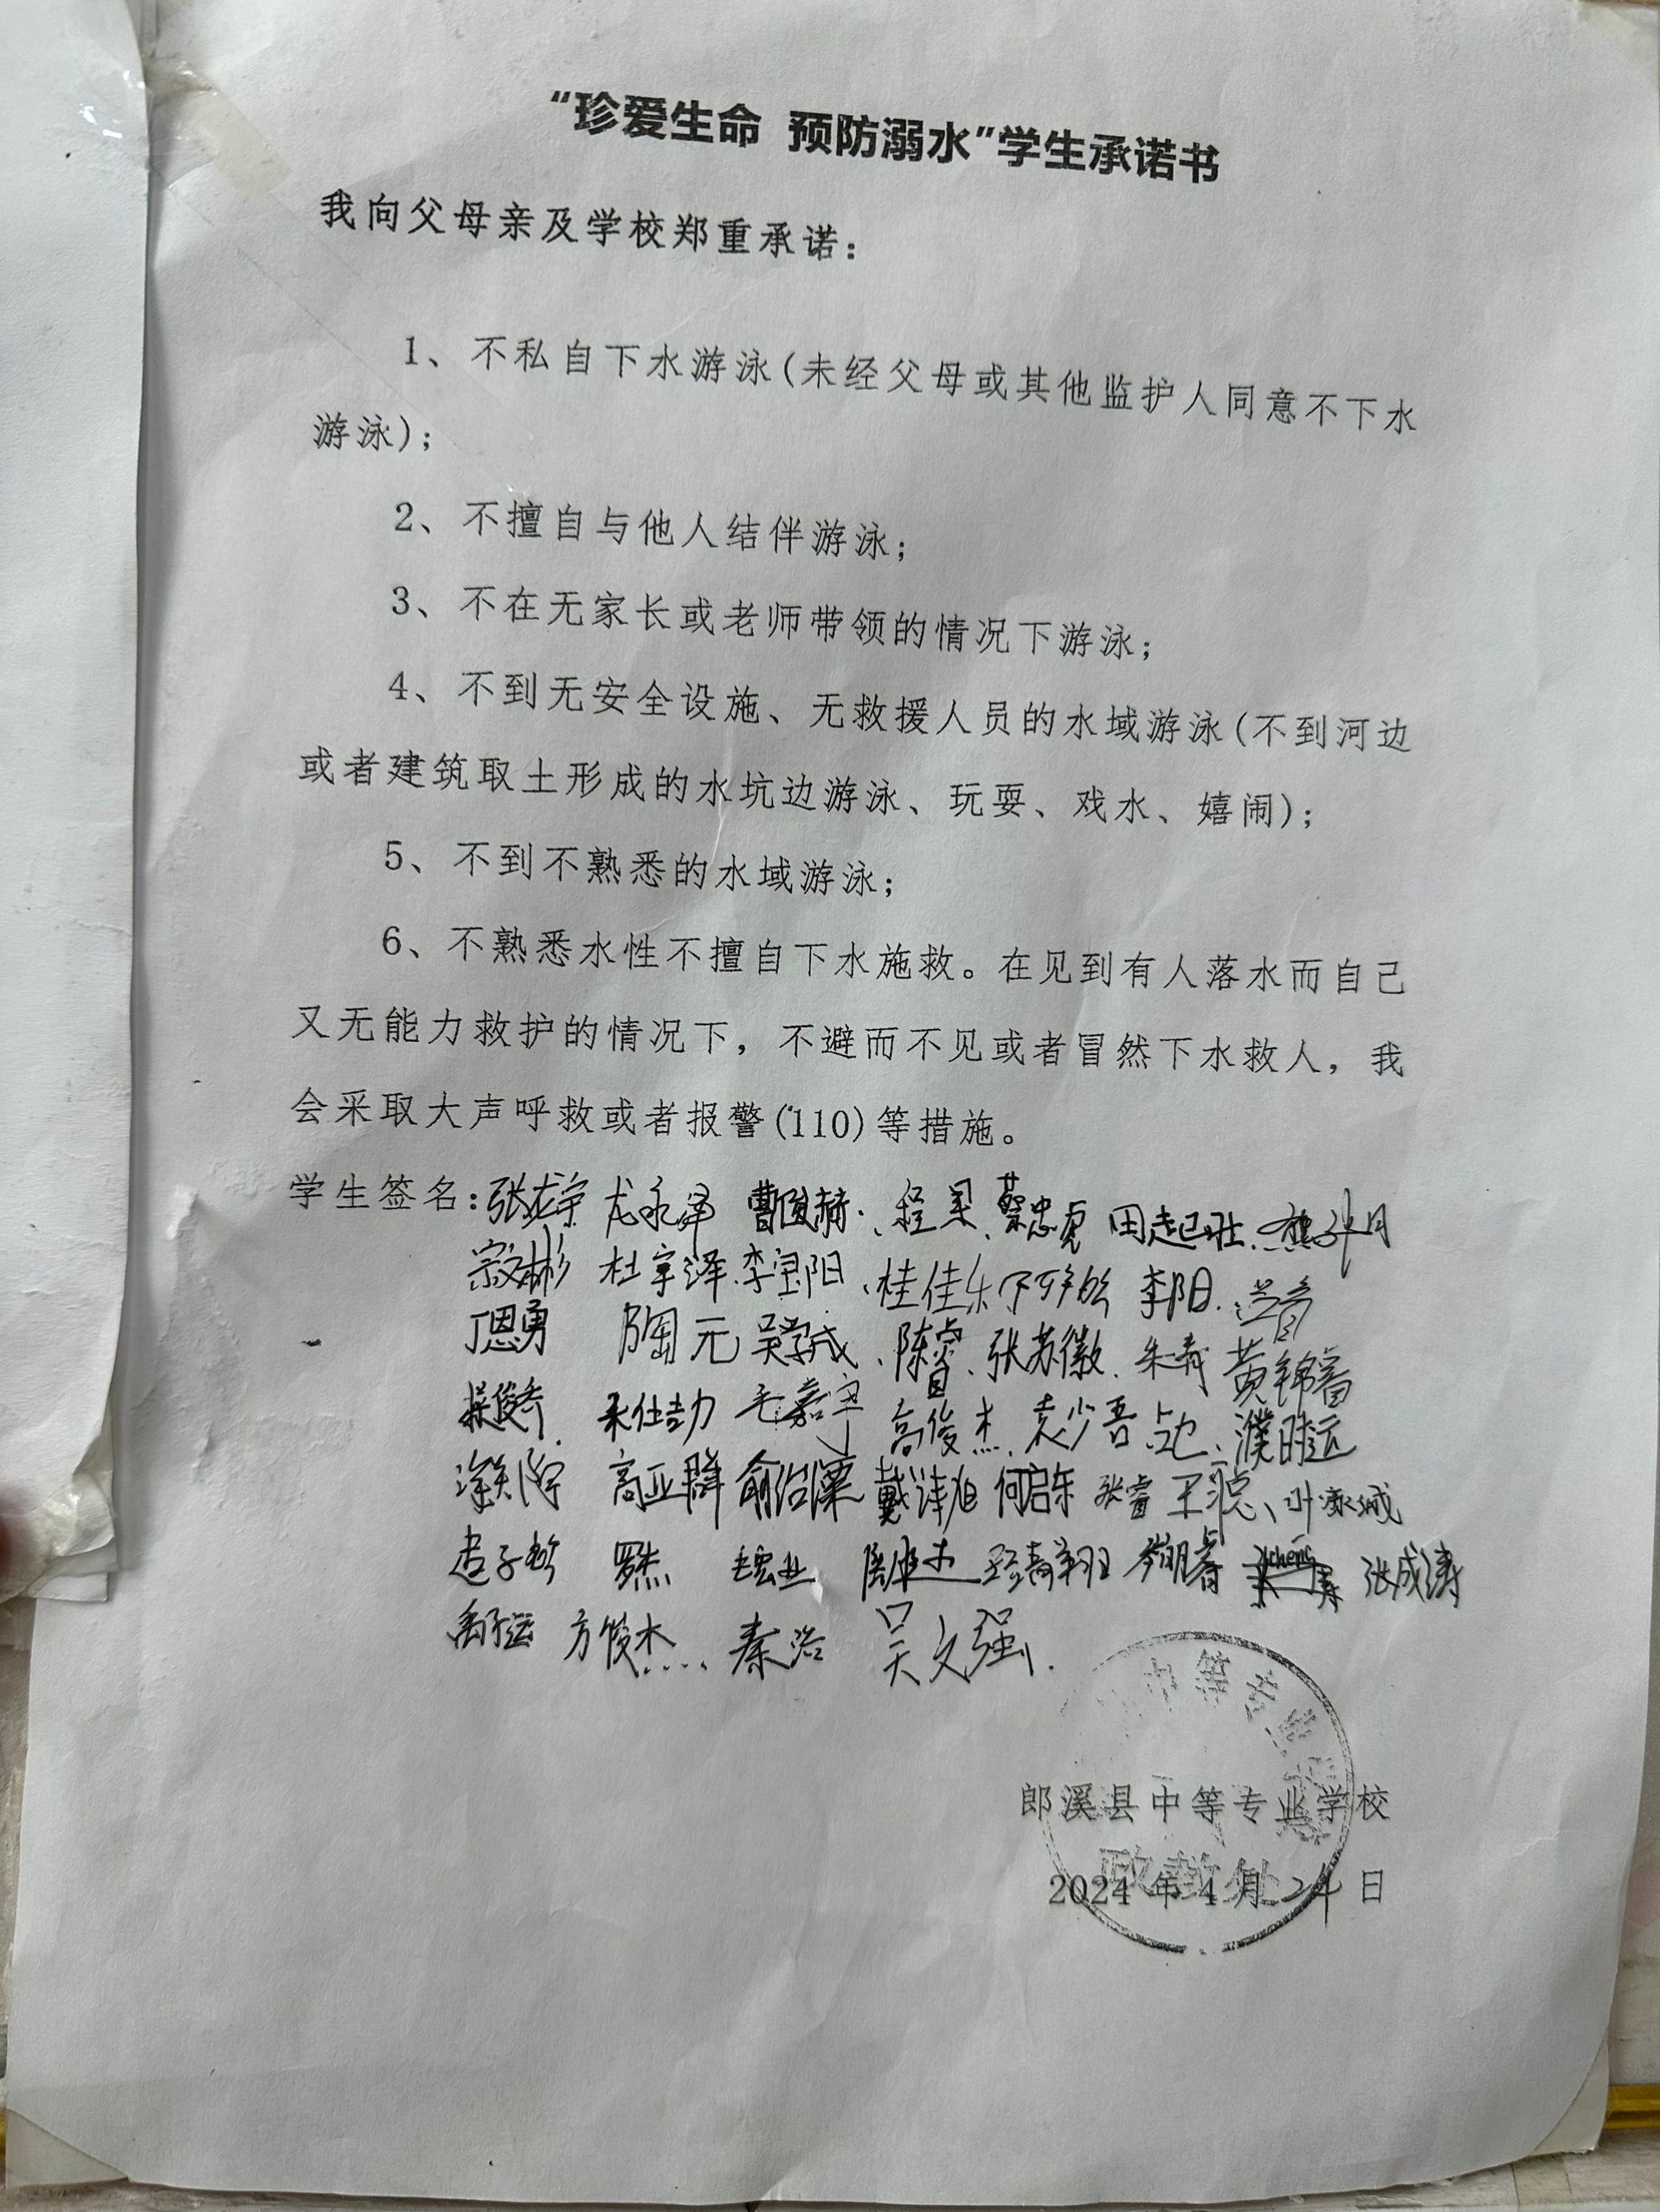 “珍爱生命 预防溺水”学生承诺书
我向父母亲及学校郑重承诺：
1、不私自下水游泳(未经父母或其他监护人同意不下水
游泳)；
2、不擅自与他人结伴游泳；
3、不在无家长或老师带领的情况下游泳；
4、不到无安全设施、无救援人员的水域游泳(不到河边
或者建筑取土形成的水坑边游泳、玩耍、戏水、嬉闹)；
5、不到不熟悉的水域游泳；
6、不熟悉水性不擅自下水施救。在见到有人落水而自己
又无能力救护的情况下，不避而不见或者冒然下水救人，我
会采取大声呼救或者报警(110)等措施。
学生签名: 龙永泽 程果 蔡忠虎
宗文彬 杜宇泽 李宝阳 桂佳乐 李阳
丁恩勇 陶元 陈睿 张苏徽 朱青 黄锦睿
毛嘉宇 高俊杰 袁少吾 濮时运
高亚辉 何启东 张睿
罗杰 张成涛
方俊杰 秦浩 吴文强.
中等专业
郎溪县中等专业学校
政教处
2024年4月24日